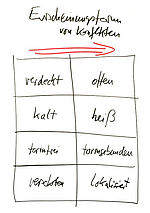 Erscheinungsformen
von Konflikten
verdeckt offen
kalt heiß
formfrei formgebunden
lokalisiert